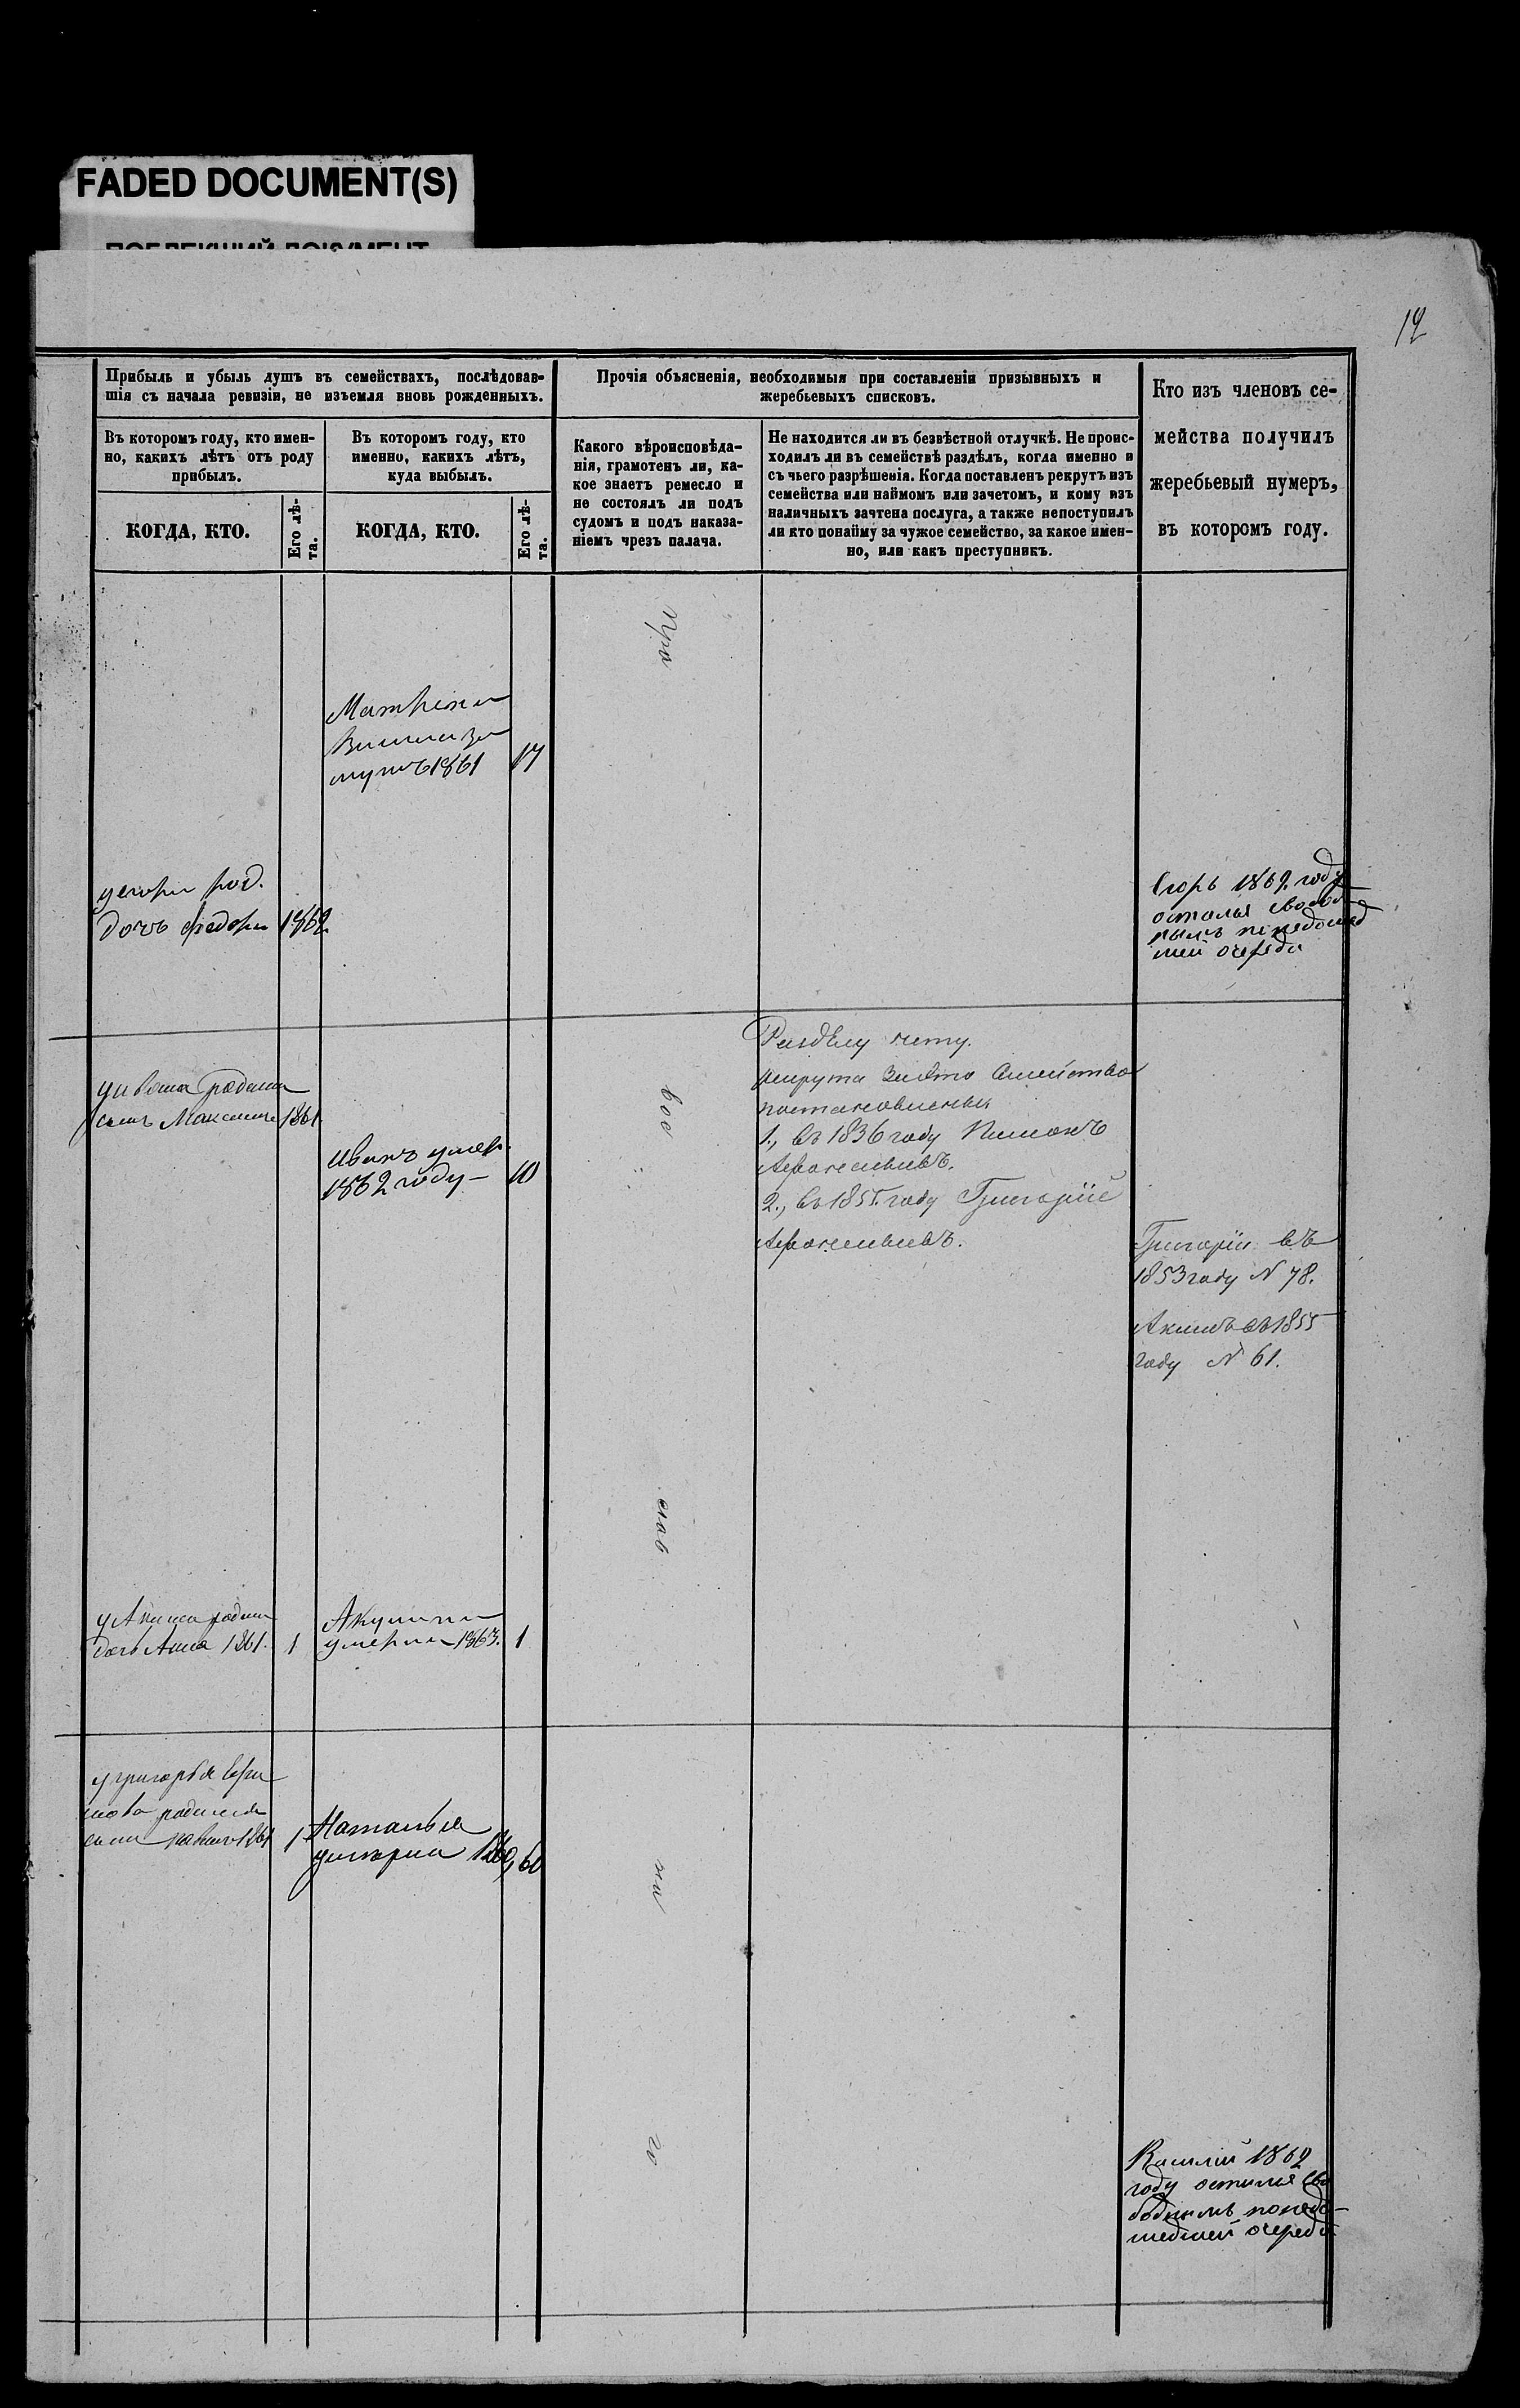 FADED DOCUMENT(S)
12
Прибыль и убыль душъ въ семействахъ, послѣдовав-
шія съ начала ревизіи, не изъемля вновь рожденныхъ.
Прочія объясненія, необходимыя при составленіи призывныхъ и
жеребьевыхъ списковъ.
Кто изъ членовъ се-
мейства получилъ
жеребьевый нумеръ,
въ которомъ году.
Въ которомъ году, кто имен-
но, какихъ лѣтъ отъ роду
прибылъ.
Въ которомъ году, кто
именно, какихъ лѣтъ,
куда выбылъ.
Какого вѣроисповѣда-
нія, грамотенъ ли, ка-
кое знаетъ ремесло и
не состоялъ ли подъ
судомъ и подъ наказа-
ніемъ чрезъ палача.
Не находится ли въ безвѣстной отлучкѣ. Не проис-
ходилъ ли въ семействѣ раздѣлъ, когда именно и
съ чьего разрѣшенія. Когда поставленъ рекрутъ изъ
семейства или наймомъ или зачетомъ, и кому изъ
наличныхъ зачтена послуга, а также непоступилъ
ли кто понайму за чужое семейство, за какое имен-
но, или какъ преступникъ.
КОГДА, КТО.
Его лѣ-
та.
КОГДА, КТО.
Его лѣ-
та.
Пра
Матрена
мужъ 1861 17
род.
дочь Федора 1862
Егоръ 1862 году
остался свобо
нымъ понедошед
шей очереди
сынъ Максимъ 1861.
Иванъ умеръ
1862 году — 10
во
Раздѣлу нету.
семейства
1., въ 1836 году
2., въ 1855 году Григорій
Григорій въ
1853 году N 78.
Акимъ въ 1855
году N 61.
слав
у Акима родил
дочь Анна 1861. 1
Акулина
умерла 1863. 1
у Григорья
родился
сынъ 1861 1
Наталья
умерла 1860, 60
на
го
Василій 1862
году остался сво
боднымъ понедо-
шедшей очереди